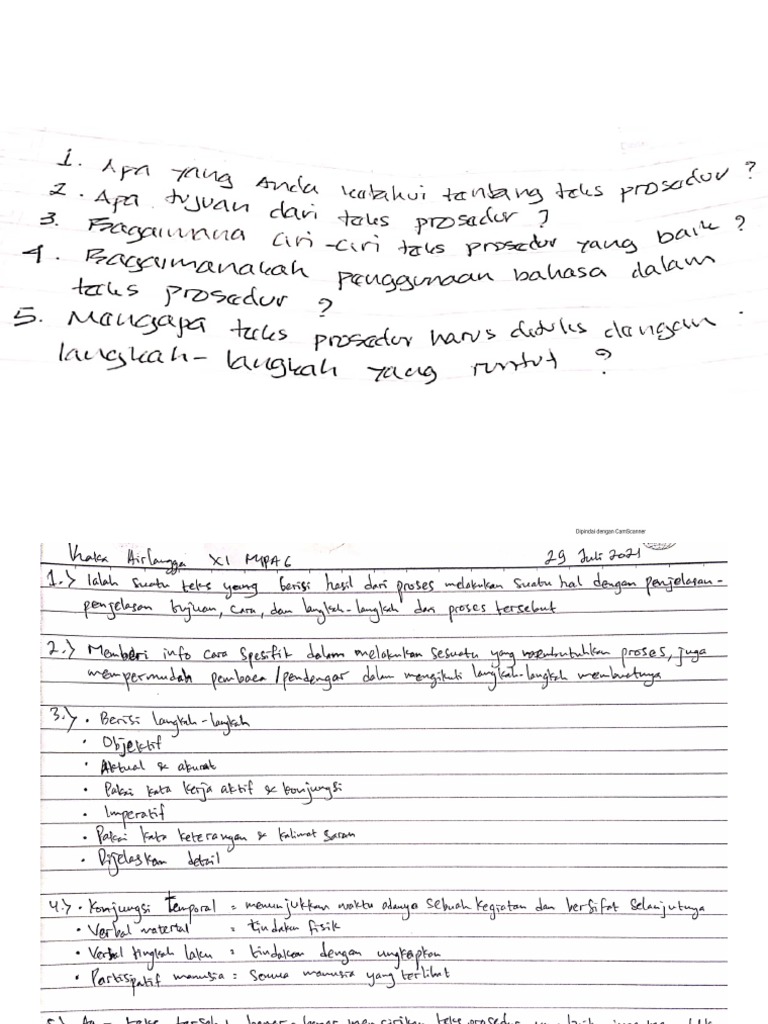 1. Apa yang Anda ketahui tentang teks prosedur ?
2. Apa tujuan dari teks prosedur ?
3. Bagaimana ciri-ciri teks prosedur yang baik ?
4. Bagaimanakah penggunaan bahasa dalam
teks prosedur ?
5. Mengapa teks prosedur harus ditulis dengan
langkah-langkah yang runtut ?
Dipindai dengan CamScanner
Airlangga XI MIPA 6 29 Juli 2021
1.) Ialah suatu teks yang berisi hasil dari proses melakukan suatu hal dengan penjelasan-
penjelasan tujuan, cara, dan langkah-langkah dari proses tersebut
2.) Memberi info cara spesifik dalam melakukan sesuatu yang membutuhkan proses, juga
mempermudah pembaca/pendengar dalam mengikuti langkah-langkah membuatnya
3.) • Berisi langkah-langkah
• Objektif
• Aktual & akurat
• Pakai kata kerja aktif & konjungsi
• Imperatif
• Pakai kata keterangan & kalimat saran
• Dijelaskan detail
4.) • Konjungsi Temporal = menunjukkan waktu adanya sebuah kegiatan dan bersifat selanjutnya
• Verbal material = tindakan fisik
• Verbal tingkah laku = tindakan dengan ungkapan
• Partisipatif manusia = Semua manusia yang terlibat